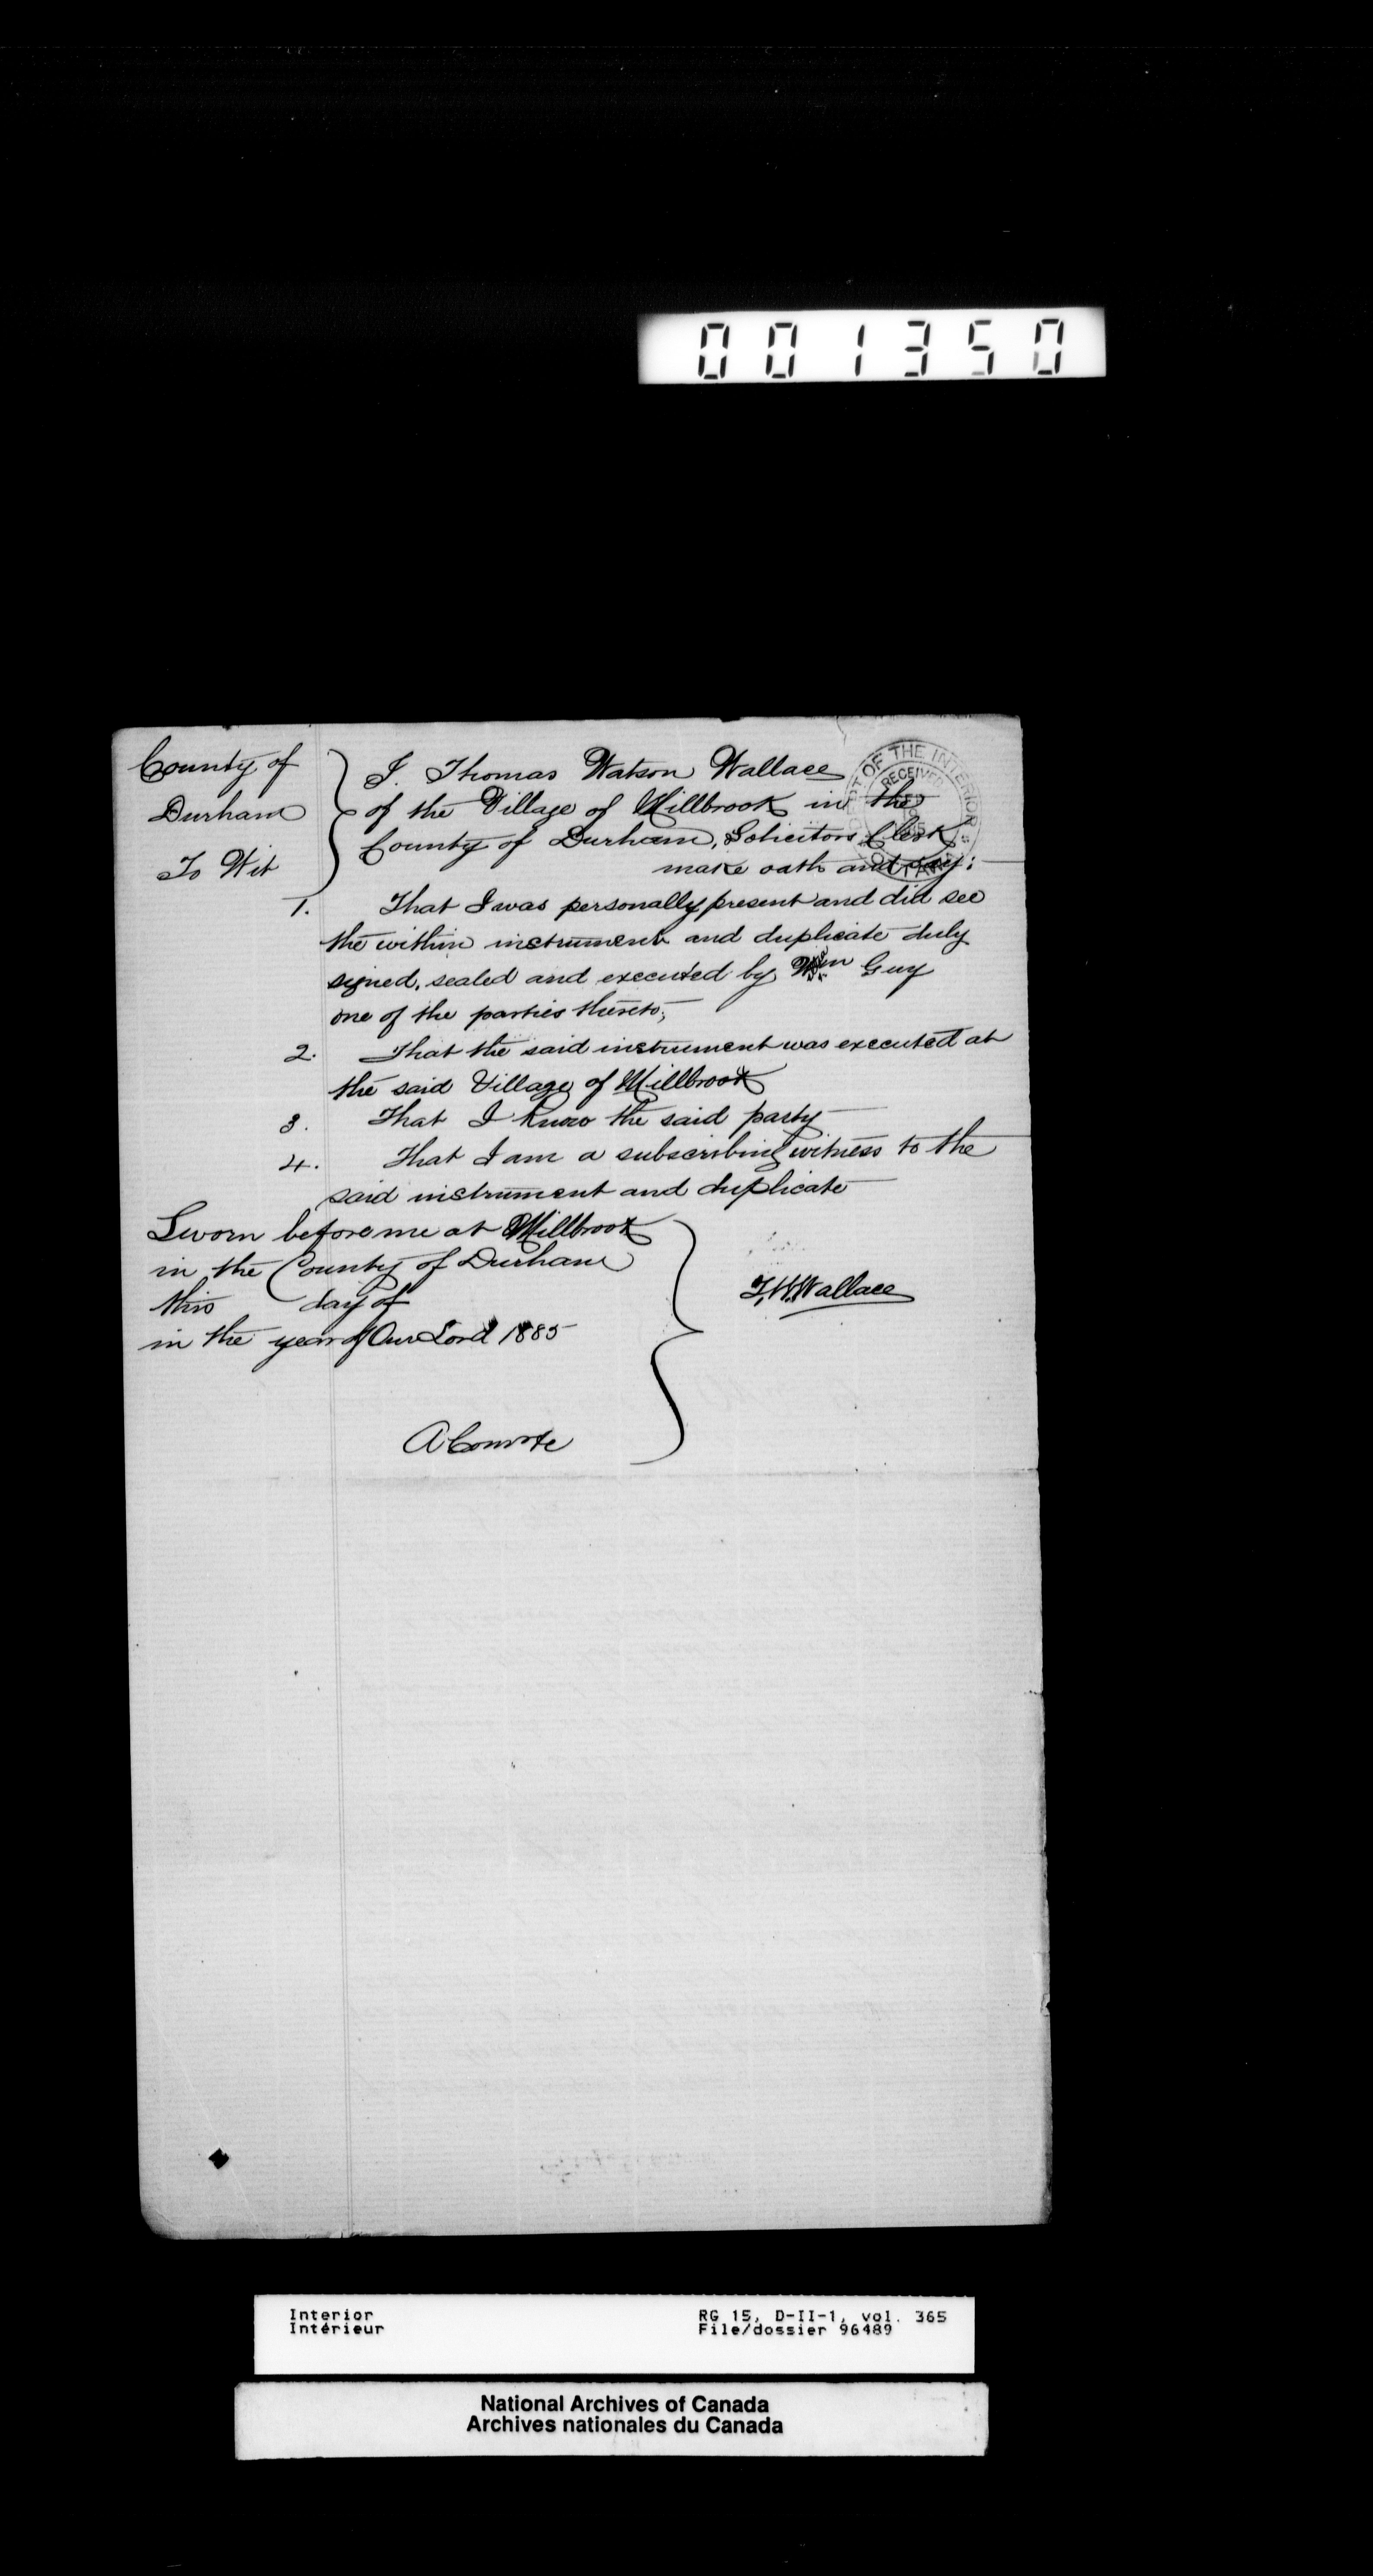 001350
County of
Durham
To Wit
I. Thomas Watson Wallace
of the Village of Millbrook in the
County of Durham, Solicitors Clerk
make oath and say:
DEPT OF THE INTERIOR
RECEIVED
OTTAWA
1. That I was personally present and did see
the within instrument and duplicate duly
signed, sealed and executed by Wm Guy
one of the parties thereto;
2. That the said instrument was executed at
the said Village of Millbrook
3. That I know the said party
4. That I am a subscribing witness to the
said instrument and duplicate
Sworn before me at Millbrook
in the County of Durham
this day of
in the year of Our Lord 1885
T.W. Wallace
A
Interior
Intérieur
RG 15, D-II-1, vol. 365
File/dossier 96489
National Archives of Canada
Archives nationales du Canada